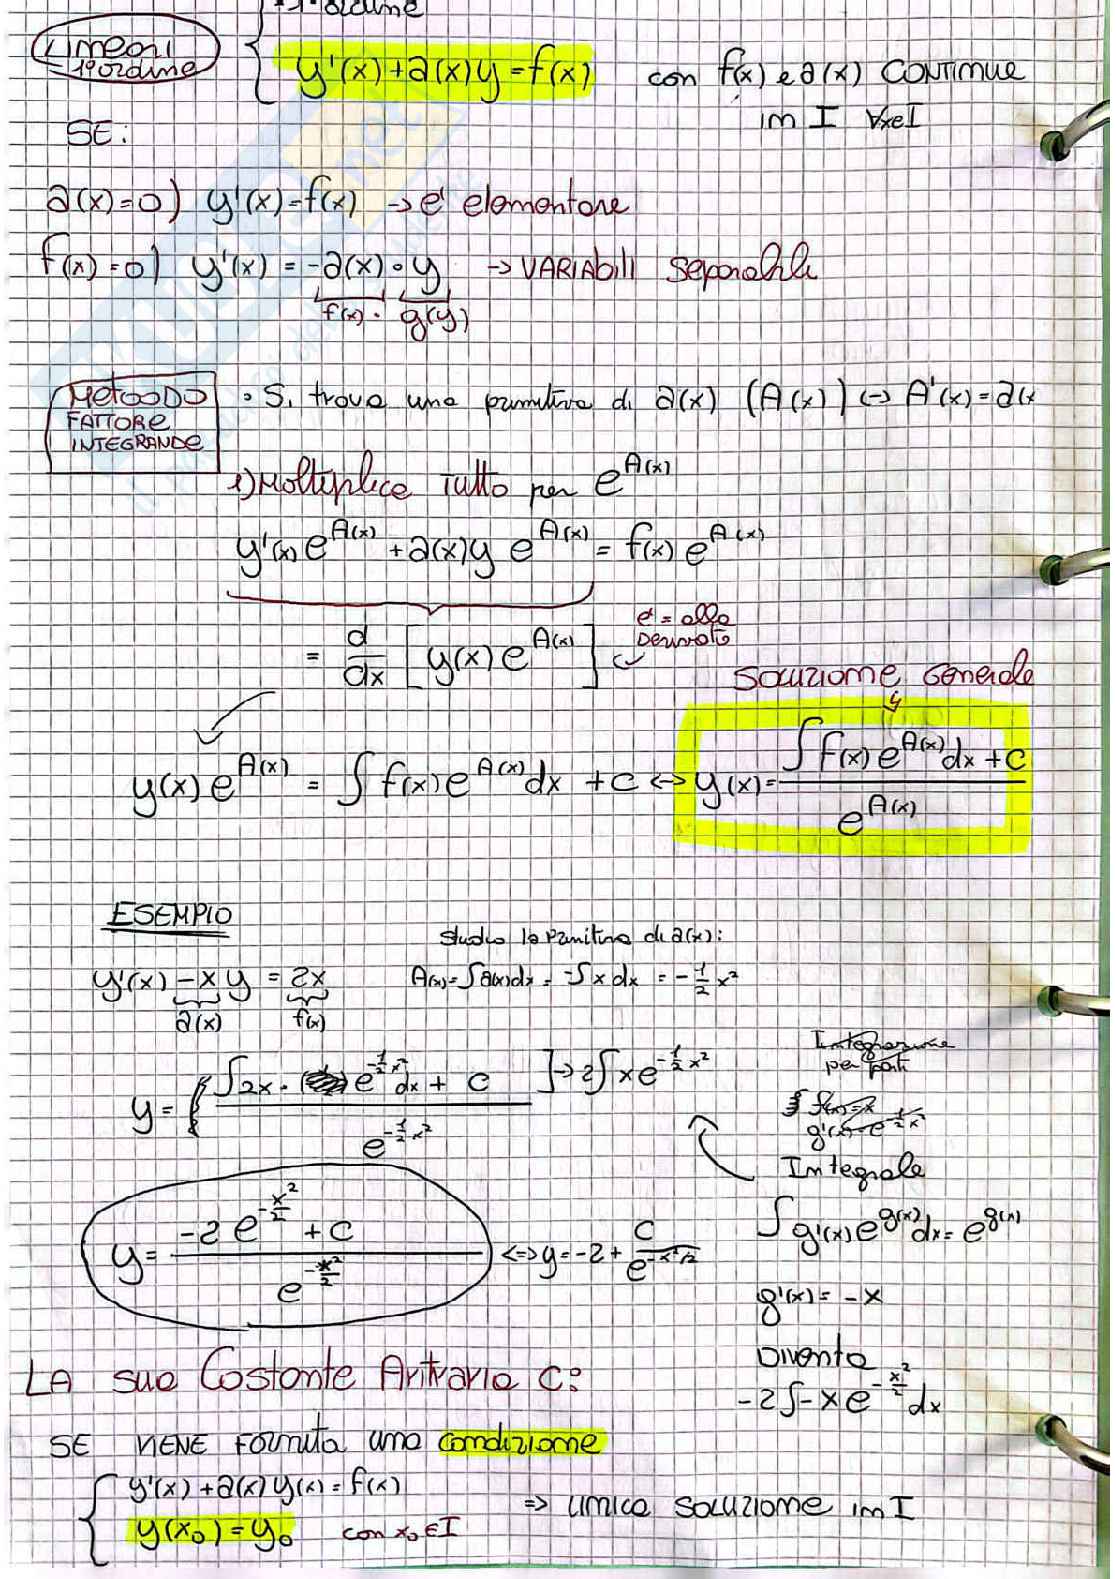 1° ordine
Lineari
1° ordine
y'(x)+a(x)y=f(x) con f(x) e a(x) CONTINUE
in I ∀x∈I
SE:
a(x)=0) y'(x)=f(x) → e' elementare
f(x)=0) y'(x) = -a(x)·y → VARIABILI Separabili
f(x) · g(y)
METODO
FATTORE
INTEGRANDE
• Si trova una primitiva di a(x) (A(x)) ↔ A'(x)=a(x
1) Moltiplice Tutto per e^A(x)
y'(x) e^A(x) + a(x)y e^A(x) = f(x) e^A(x)
= d/dx [y(x) e^A(x)] e' = alla Derivata
SOLUZIONE Generale
y(x) e^A(x) = ∫ f(x) e^A(x) dx + c ↔ y(x) = (∫ f(x) e^A(x) dx + c) / e^A(x)
ESEMPIO
Studio la Primitiva di a(x):
y'(x) -x y = 2x A(x)=∫a(x)dx = -∫x dx = -1/2 x²
a(x) f(x)
Integrazione
per parti
y = {(∫2x · e^(-1/2 x²) dx + c) / e^(-1/2 x²)] → 2∫x e^(-1/2 x²)
f(x)=x
g'(x)=e^(-1/2 x²)
Integrale
∫g'(x) e^g(x) dx = e^g(x)
y = (-2 e^(-x²/2) + c) / e^(-x²/2) <=> y = -2 + c / e^(-x²/2)
g'(x) = -x
Diventa
-2∫-x e^(-x²/2) dx
LA sua Costante Aritraria C:
SE VIENE Fornita una condizione
{ y'(x)+a(x)y(x)=f(x)
y(x₀)=y₀ con x₀∈I
⇒ unica soluzione in I